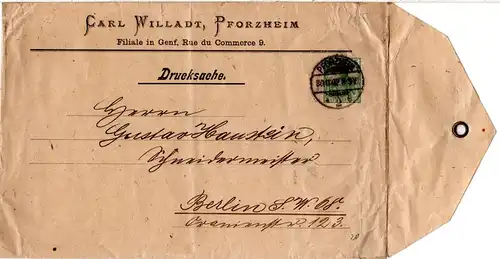 CARL WILLADT, PFORZHEIM
Filiale in Genf, Rue du Commerce 9.
Drucksache.
Herrn
Gustav Haustein,
Schneidermeister
Berlin S.W. 68.
Oranienstr. 123.